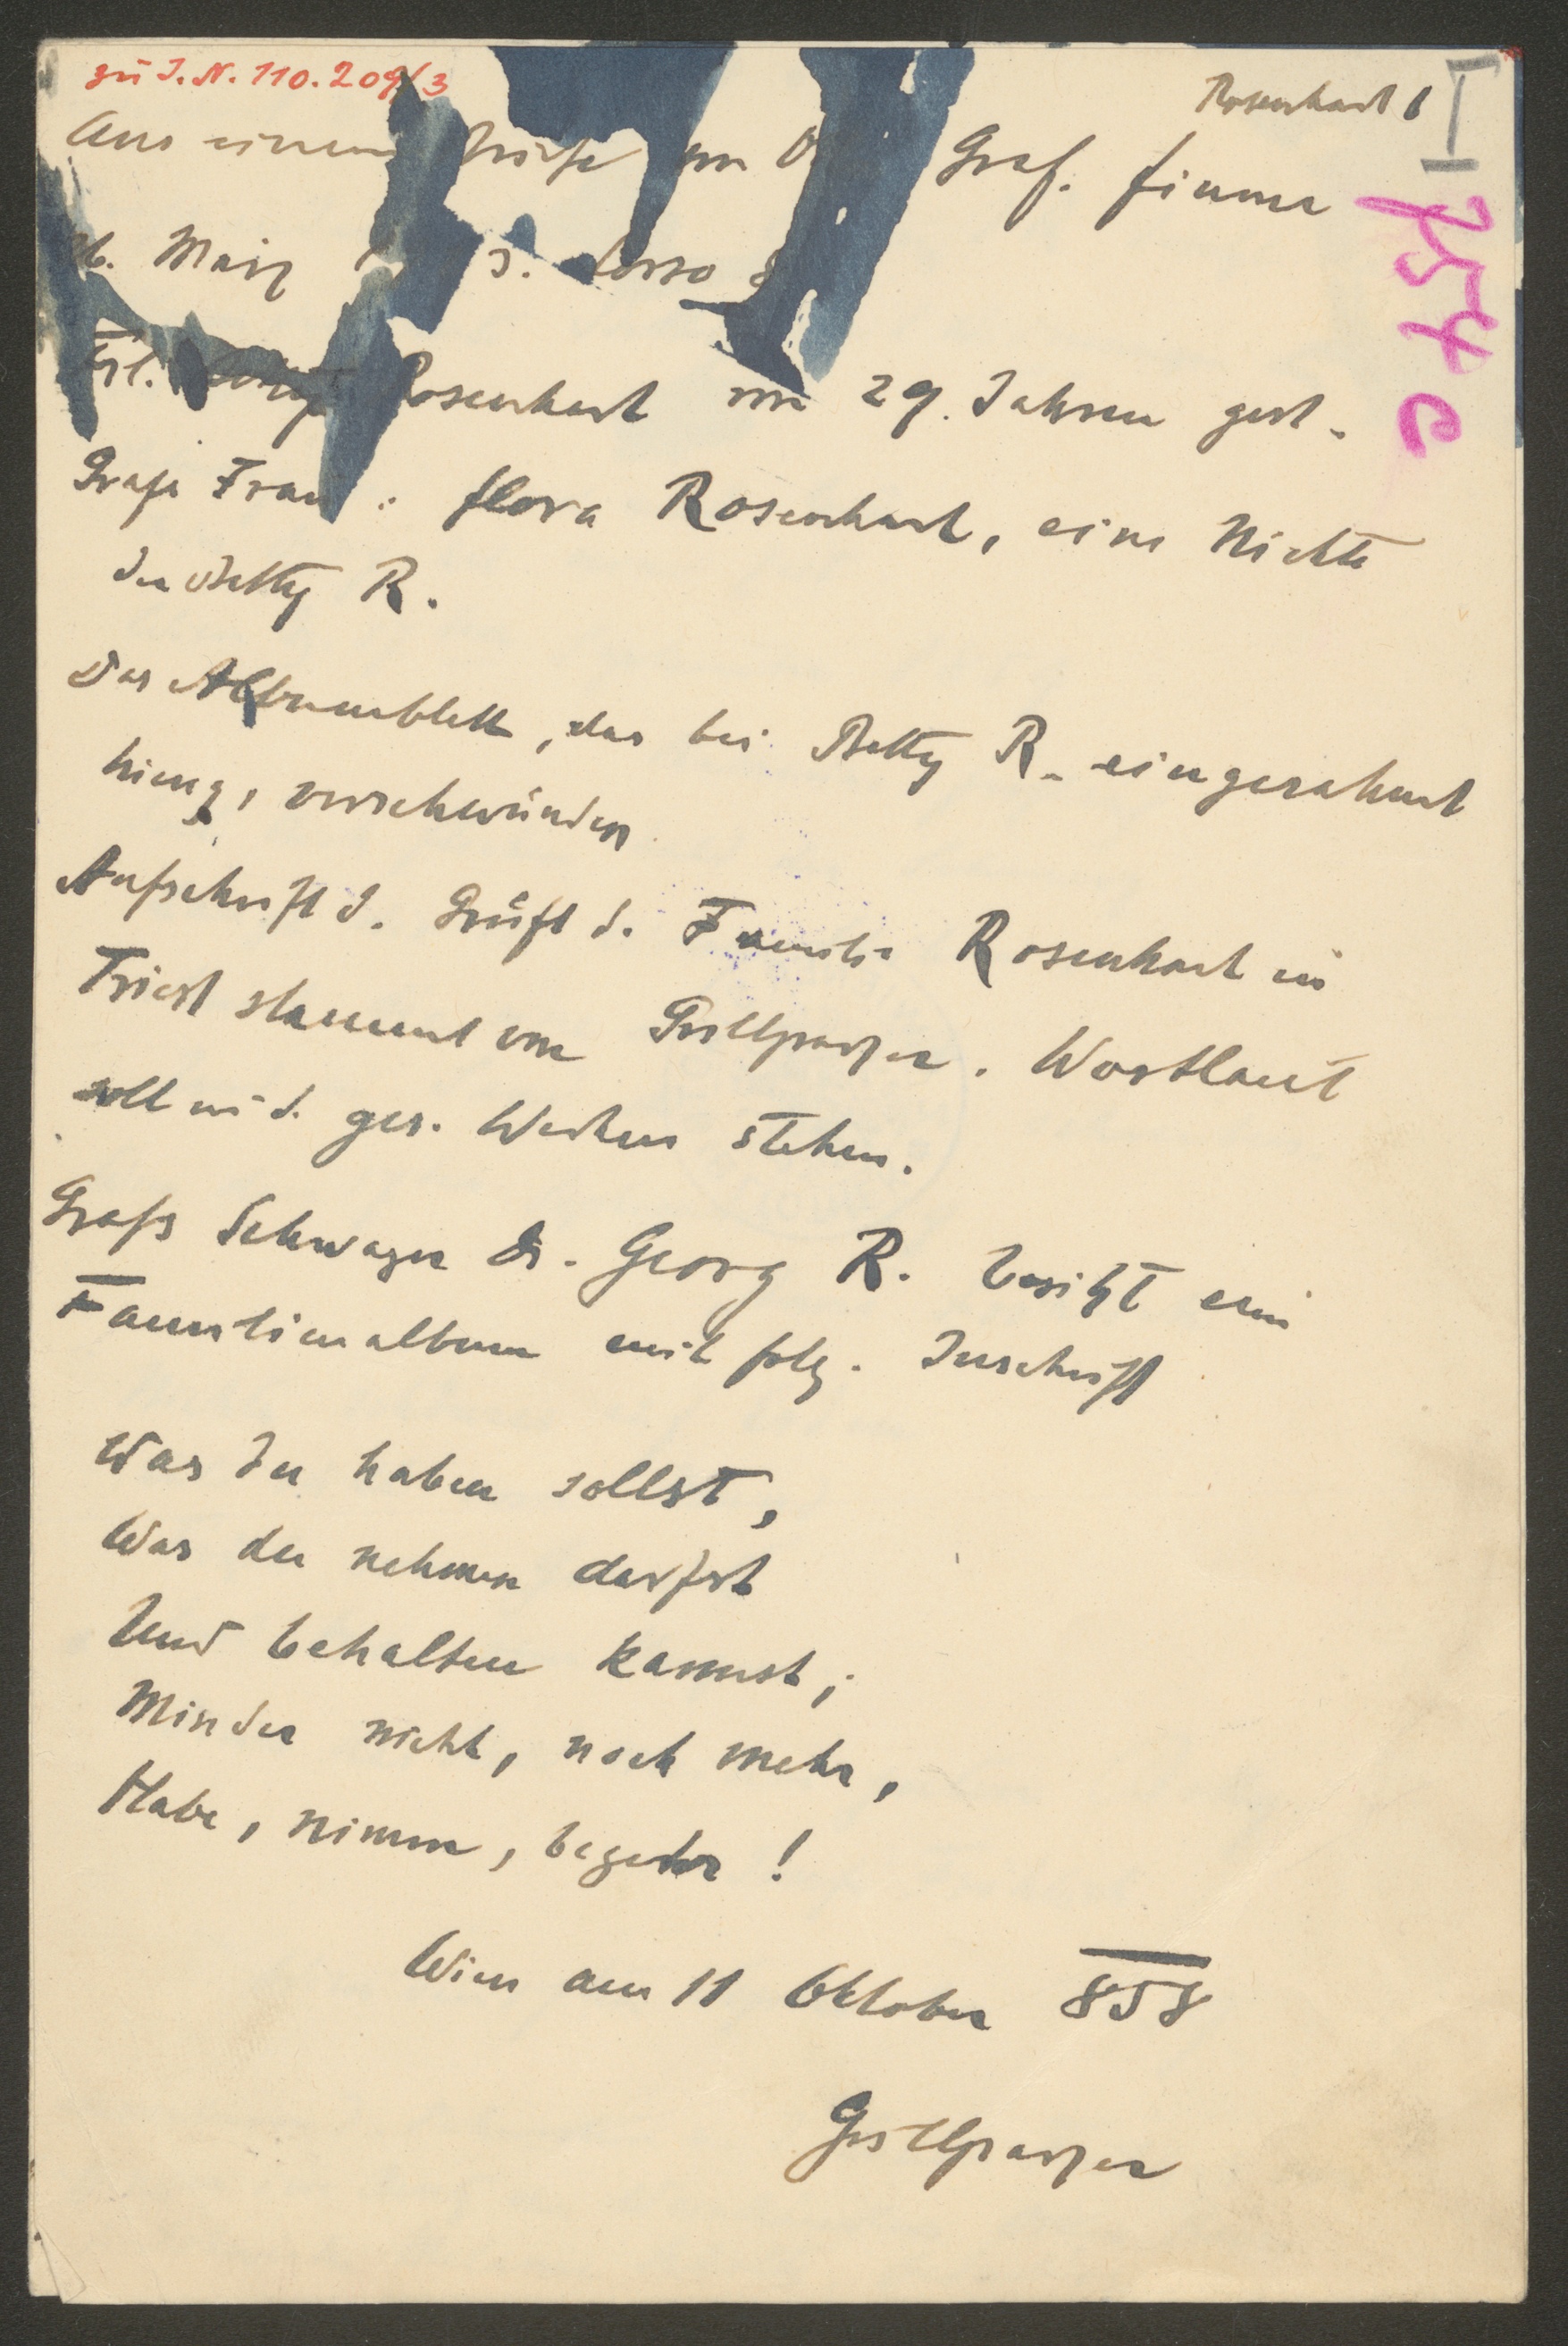 zu I.N. 110.209/3
Rosenhart 1
I
754 c
Aus einem Briefe von Graf. Fiume
16. März 3. Corso
Frl. Rosenhart vor 29 Jahren gest.
Grafs Frau: Flora Rosenhart, eine Nichte
der Betty R.
Das Albumblatt, das bei Betty R. eingerahmt
hieng, verschwunden
Aufschrift d. Gruft d. Familie Rosenhart in
Triest stammt von Grillparzer. Wortlaut
soll in d. ges. Werken stehen.
Grafs Schwager Dr. Georg R. besitzt ein
Familienalbum mit folg. Inschrift
Was du haben sollst,
Was du nehmen darfst
Und behalten kannst;
Minder nicht, noch mehr,
Habe, nimm, begehr!
Wien am 11 Oktober 858
Grillparzer